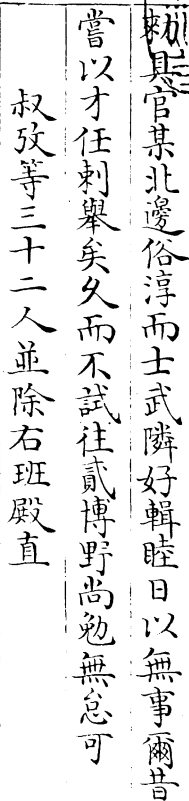 勑具官某北邊俗淳而士武隣好輯睦日以無事爾昔
嘗以才任刺舉矣久而不試往貳博野尚勉無怠可
叔攷等三十二人並除右班殿直